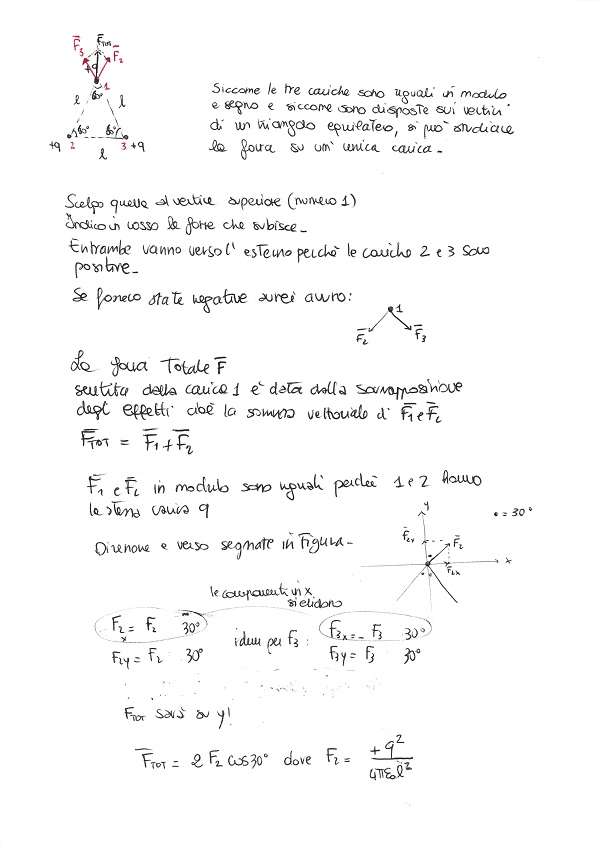 F̅TOT
F̅3 F̅2
+q
1
60°
l l
60° 60°
+q 2 3 +q
l
Siccome le tre cariche sono uguali in modulo
e segno e siccome sono disposte sui vertici
di un triangolo equilatero, si può studiare
la forza su un' unica carica.
Scelgo quella al vertice superiore (numero 1)
Indico in rosso le forze che subisce.
Entrambe vanno verso l' esterno perchè le cariche 2 e 3 sono
positive.
Se fossero state negative avrei avuto:
1
F̅2 F̅3
La forza Totale F̅
sentita dalla carica 1 è data dalla sovrapposizione
degli effetti cioè la somma vettoriale di F̅1 e F̅2
F̅TOT = F̅1 + F̅2
F̅1 e F̅2 in modulo sono uguali perchè 1 e 2 hanno
la stessa carica q
Direzione e verso segnate in Figura.
y
• = 30°
F̅2y F̅2
x
F̅2x
le componenti in x
si elidono
F2x = F2 30°
idem per F3 :
F3x = - F3 30°
F2y = F2 30°
F3y = F3 30°
FTOT sarà su y!
F̅TOT = 2 F2 cos 30° dove F2 = +q² / 4πε0l²